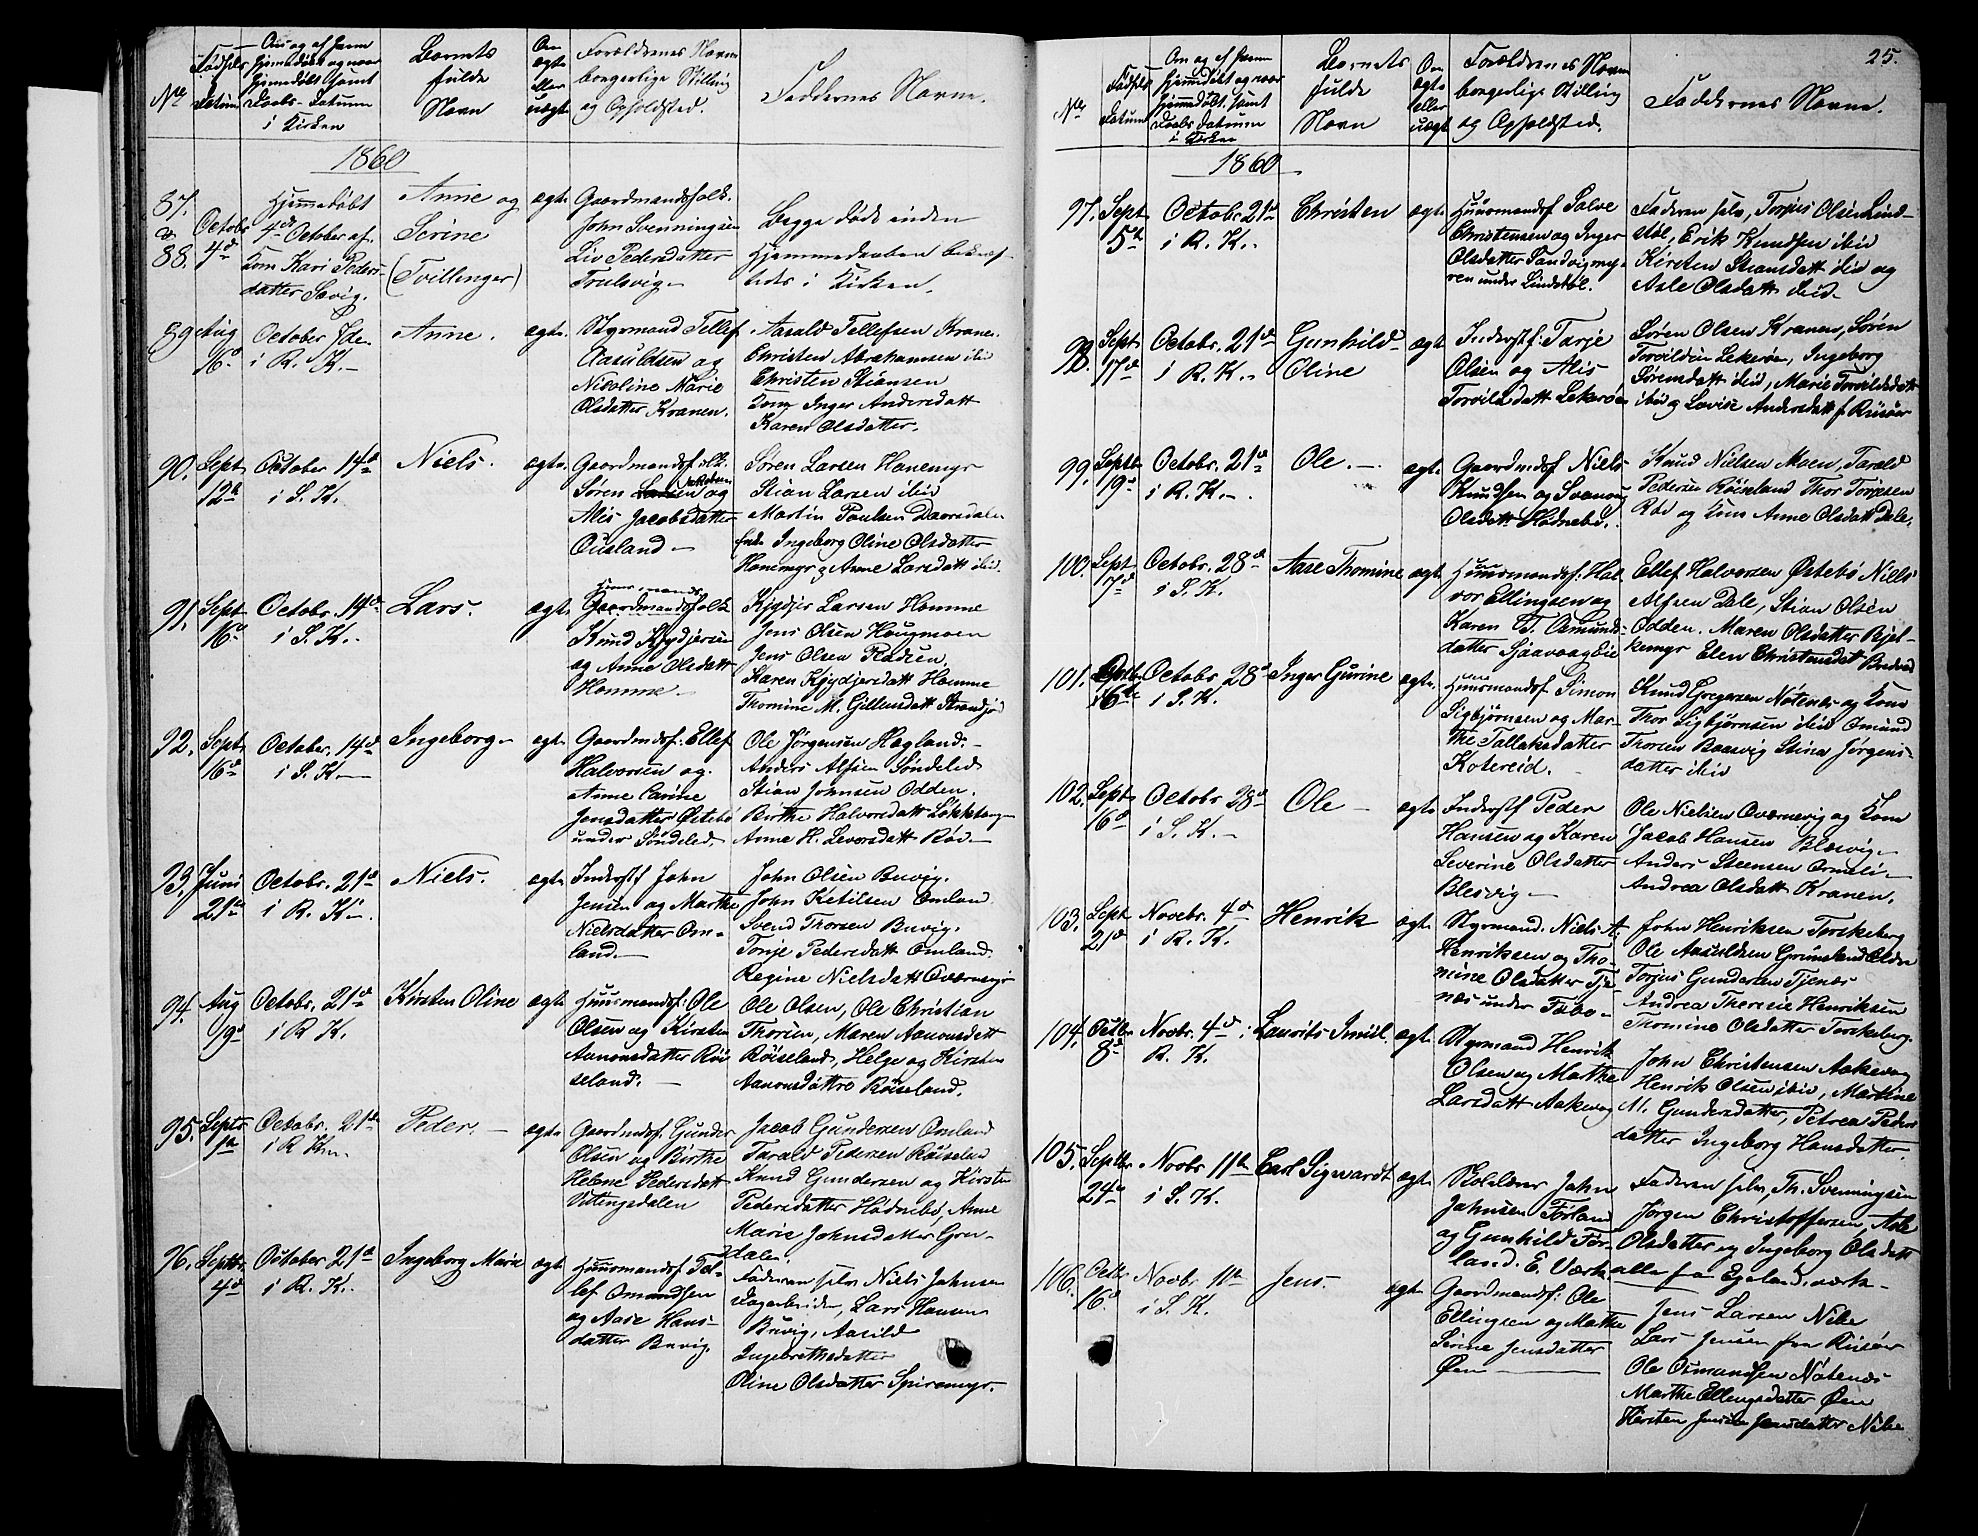 No
Fødsels-
Datum
Om og af hvem
hjemmedøbt og naar
hjemmedøbt samt
Daabs-Datum
i Kirken
Barnets
fulde
Navn
Om
ægte
eller
uægte
Forældrenes Navne
borgerlige Stilling
og Opholdsted.
Faddernes Navne.
1860
87.
&
88.
Octobr
4d
Hjemmedøbt
4de October af
Kari Peders-
datter Savig.
Anne og
Serine
(Tvillinger)
ægte
Gaardmandsfolk.
John Svenningsen
Liv Pedersdatter
Trulsvig
Begge døde inden
Hjemmedaaben bekræf-
tedes i Kirken.
89
Aug
16d
October 7de
i R. K.
Anne.
ægte
Styrmand Tellef
Aasuldsen og
Nicoline Marie
Olsdatter Kranen.
Aasuld Tellefsen Kranen
Christen Abrahamsen ibid
Christen Stiansen
Inger Andersdatt
Karen Olsdatter.
90.
Sept
12d
October 14d
i S. K.
Niels.
ægte
Gaardmandsfolk.
Søren Larsen Jacobsen og
Alis Jacobsdatter
Ousland
Søren Larsen Hanemyr
Stian Larsen ibid
Martin Paulsen Daarsdalen
Ingeborg Oline Olsdatter
Hanemyr og Anne Larsdatt ibid.
91.
Sept
16d
Octobr. 14d
i S. K.
Lars.
ægte
Huusmands
Gaardmandsfolk
Knud Kydjersen
og Anne Olsdatt
Homme
Kydjer Larsen Homme
Jens Olsen Haugmoen
Jens Olsen Fladsen
Karen Kydjersdatt Homme
Thomine M. Gillensdatt
92.
Sept
16d
October. 14d
i S. K.
Ingeborg
ægte
Gaardmdsf: Ellef
Halvorsen og
Anne Carine
Jensdatter Østebø
under Søndeled.
Ole Jørgensen Hagland.
Anders Alfsen Søndeled
Stian Johnsen Odden.
Birthe Halvorsdatt Løkketangen
Anne H. Levorsdatt Rød
93.
Juni
21de
Octobr. 21d
i R. K.
Niels.
ægte
Inderstf John
Jensen og Marthe
Nielsdatter Om-
land.
John Olsen Buvig.
John Ketilsen Omland
Svend Thorsen Buvig.
Torje Pedersdatt Omland
Regine Nielsdatt Qværnvig
94.
Aug
19d
Octobr. 21d
i R. K.
Kirsten Oline
ægte
Huusmandsf: Ole
Olsen og Kirsten
Aanonsdatter Røi-
seland.
Ole Olsen, Ole Christian
Thorsen, Maren Aanonsdatt
Røiseland, Helge og Kirsten
Aanonsdattre Røiseland.
95.
Septr
1d
Octobr. 21d
i R. K.
Peder.
ægte
Gaardmdsf. Gunder
Olsen og Birthe
Helene Pedersdatt
Vittingsdalen
Jacob Gundersen Omland
Tarald Pedersen Røiseland
Knud Gundersen og Kirsten
Pedersdatter Hødnebø, Anne
Marie Johnsdatter Gren-
dalen.
96.
Septbr.
4d
October 21d
i R. K.
Ingeborg Marie
ægte
Huusmandsf Tel-
lef Omondsen
og Aase Hans-
datter Buvig.
Faderen selv Niels Johnsen
Lars Hansen
Buvig, Aasild
Ingebrethsdatter
Oline Olsdatter Spiremyr.
25.
No
Fødsels
Datum
Om og af hvem
hjemmedøbt og naar
hjemmedøbt samt
Daabs Datum
i Kirken
Barnets
fulde
Navn
Om
ægte
eller
uægte
Forældrenes Navn
borgerlige Stilling
og Opholdsted.
Faddernes Navne.
1860
97.
Sept
5d
Octobr 21d
i R. K.
Christen
ægte
Huusmandsf Salve
Christensen og Inger
Olsdatter Sandvigmy-
ren under Lindstøl.
Faderen selv, Torjus Olsen Lind-
støl, Erik Knudsen ibid
Kirsten Steansdatt ibid og
Aale Olsdatt ibid.
98.
Sept
17d
Octobr. 21d
i R. K.
Gunhild
Oline
ægt
Inderstf: Tarje
Olsen og Alis
Torvildsdatt Lekerøen
Søren Olsen Kranen, Søren
Torvildsen Lekerøen, Ingeborg
Sørensdatt ibid, Marie Torvildsdatt
ibid og Lovise Andersdatt f Riisøer
99.
Septb
19d
Octobr. 21d
i R. K.
Ole.
ægte
Gaardmdsf Niels
Knudsen og Svanaug
Olsdatt Hødnebø.
Knud Nielsen Moen, Tarald
Pedersen Røiseland Thor Torjesen
Røed og Kone Anne Olsdatt Dale.
100.
Sept
17d
Octobr. 28d
i S. K.
Aase Thomine
ægt
Huusmandsf: Hal-
vor Ellingsen og
Karen T. Osmunds-
datter Sjaavaag Eie
Ellef Halvorsen Østebø Niels
Alfsen Dale, Stian Olsen
Odden. Maren Olsdatter Bjel-
kemyr Elen Christensdatt
101.
16de
Octobr 28d
i S. K.
Inger Gurine
ægte.
Huusmandsf Simon
Sigbjørnsen og Mar-
the Tallaksdatter
Kotereid.
Knud Gregersen Nøtenes og Kone
Thor Sigbjørnsen ibid Omund
Thorsen Baasvig Stina Jørgens-
datter ibid
102.
Sept
16d
Octobr 28d
i S. K.
Ole
ægte
Inderstf Peder
Hansen og Karen
Severine Olsdatter
Blesvig
Ole Nielsen Qværnvig og Kone
Jacob Hansen Blesvig
Anders Steensen Ormeli
Andrea Olsdatt Kranen.
103.
Sept
21d
Novbr. 4d
i R. K.
Henrik
ægt
Styrmand. Niels A.
Henriksen og Tho-
mine Olsdatter Tje-
næs under Tobo
John Henriksen Torskeberg
Ole Aasuldsen Grønsland
Torjus Gundersen Tjenæs
Andrea Theresie Henriksen
Thomine Olsdatter Torskeberg.
104.
Octbr
8d
Novbr. 4d
R. K.
Laurits Imiel
ægt
Styrmand Henrik
Olsen og Marthe
Larsdatt Aakevaag
John Christensen Aakevaag
Henrik Olsen ibid, Martine
M. Gundersdatter, Petrea Peders-
datter Ingeborg Hansdatter.
105.
Septbr
24d
Novbr 11te
i S. K.
Carl Sigwardt
ægt
John
Johnsen Førland
og Gunhild Før-
land. E. Værk
Faderen selv, Th. Svenningsen
Jørgen Christoffersen, Aase
Olsdatter og Ingeborg Olsdatt
alle fra Egelands værk
106.
Octbr
16d
Novbr 11te
i S. K.
Jens
ægte
Gaardmandsf: Ole
Ellingsen og Marthe
Serine Jensdatter
Øen
Jens Larsen Nibe
Lars Jensen fra Riisøer
Ole Osmundsen Nøtenes
Marthe Ellingsdatter Øen
Kirsten Jensdatter Nibe